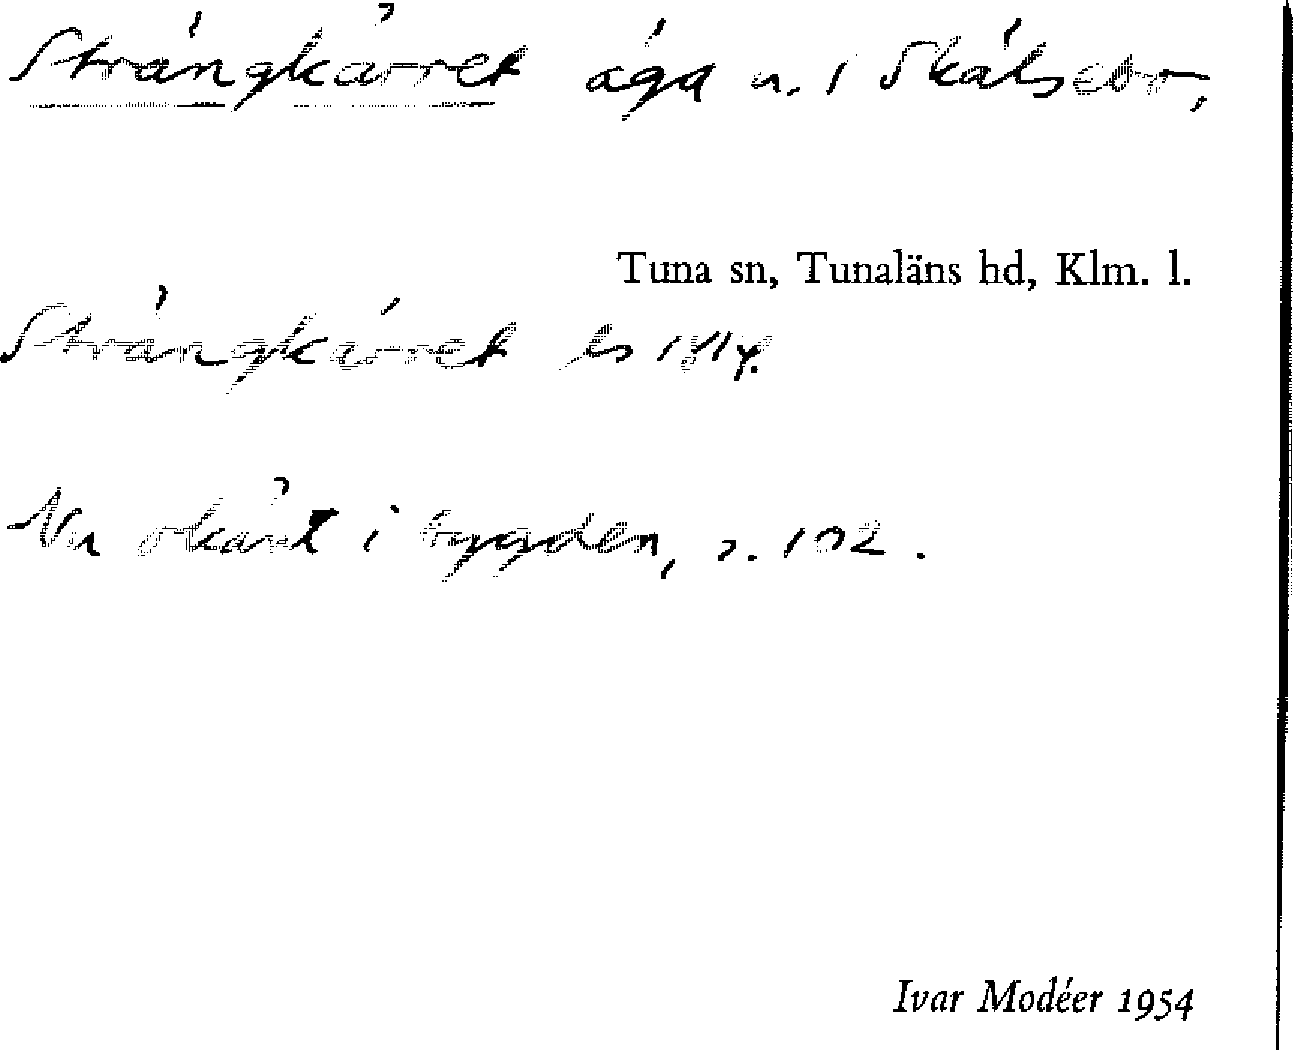 Strängkärret äga u. i Skälsebo,
Tuna sn, Tunaläns hd, Klm. l.
Strängkärret ls
Nu okänt i bygden, s. 102.
Ivar Modéer 1954